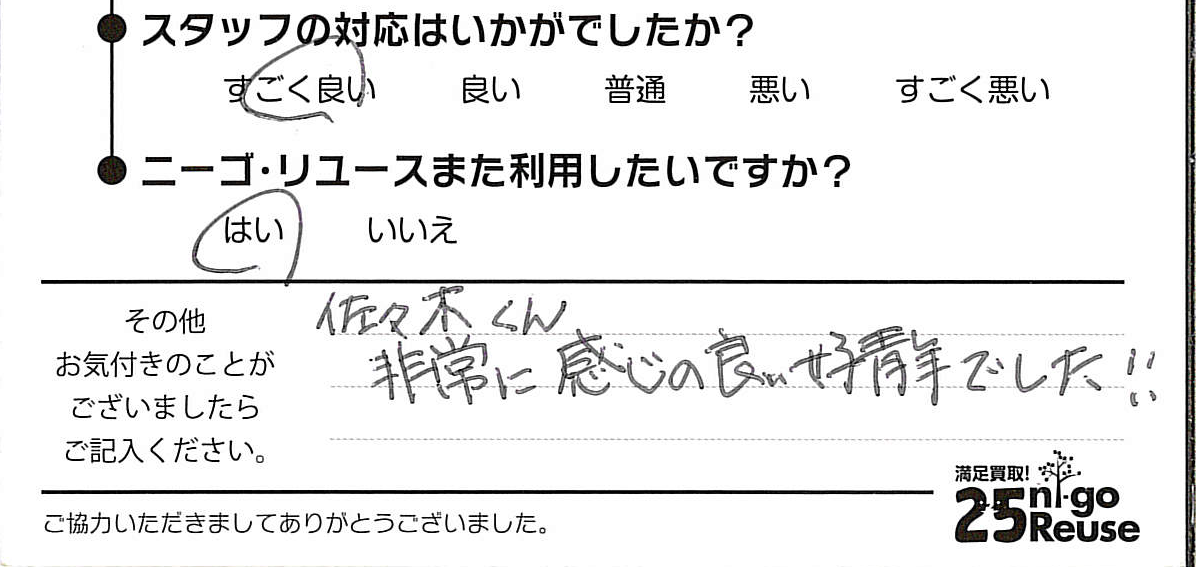 スタッフの対応はいかがでしたか？
すごく良い 良い 普通 悪い すごく悪い
ニーゴ・リユースまた利用したいですか？
はい いいえ
その他
お気付きのことが
ございましたら
ご記入ください。
佐々木くん
非常に感じの良い好青年でした!!
満足買取!
25 ni-go
Reuse
ご協力いただきましてありがとうございました。